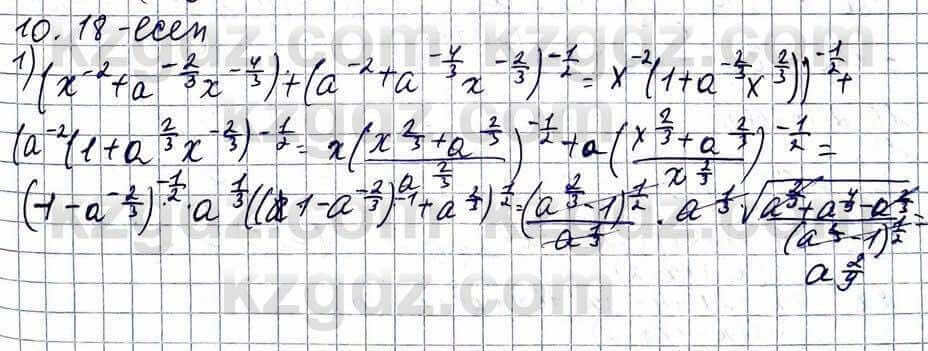 10.18-есеп
1) (x^{-2} + a^{-\frac{2}{3}} x^{-\frac{4}{3}}) + (a^{-2} + a^{-\frac{4}{3}} x^{-\frac{2}{3}})^{-\frac{1}{2}} = x^{-2}(1 + a^{-\frac{2}{3}} x^{\frac{2}{3}}))^{-\frac{1}{2}} +
(a^{-2}(1 + a^{\frac{2}{3}} x^{-\frac{2}{3}})^{-\frac{1}{2}} = x(\frac{x^{\frac{2}{3}} + a^{\frac{2}{3}}}{a^{\frac{2}{3}}})^{-\frac{1}{2}} + a(\frac{x^{\frac{2}{3}} + a^{\frac{2}{3}}}{x^{\frac{2}{3}}})^{-\frac{1}{2}} =
(-1 - a^{-\frac{2}{3}})^{-\frac{1}{2}} · a^{\frac{1}{3}}((1 - a^{-\frac{2}{3}})^{-1} + a^{\frac{2}{3}})^{\frac{1}{2}} = \frac{(a^{\frac{2}{3}} - 1)^{\frac{1}{2}}}{a^{\frac{1}{3}}} · a^{\frac{1}{3}} · \frac{\sqrt{a^{\frac{2}{3}} + a^{\frac{4}{3}} - a^{\frac{2}{3}}}}{(a^{\frac{2}{3}} - 1)^{\frac{1}{2}}} =
a^{\frac{2}{9}}
kzgdz.com